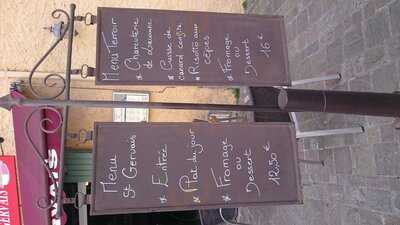 Menu Terroir
* Charcuterie
de Lacaune
* Cuisse de
canard confite
* Risotto aux
cèpes
* Fromage
ou
Dessert
16 €
Menu
St Gervais
* Entrée
* Plat du jour
* Fromage
ou
Dessert
12,50 €